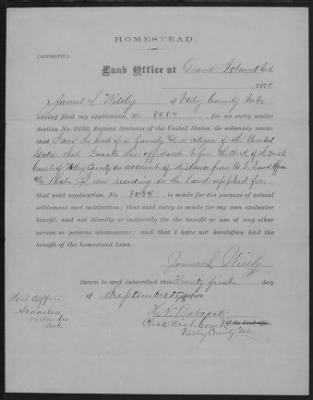 HOMESTEAD.
(AFFIDAVIT.)
Land Office at Grand Island Neb
187
I, of Valley County Nebr
having filed my application, No. 8084, for an entry under
Section No. 2289, Revised Statutes of the United States, do solemnly swear
that I am the head of a family & a citizen of the United
States that I make this affidavit before the Clerk of the
Court of Valley County on account of distance from U. S. Land Office
that I am residing on the land applied for
that said application, No. 8084 is made for the purpose of actual
settlement and cultivation; that said entry is made for my own exclusive
benefit, and not directly or indirectly for the benefit or use of any other
person or persons whomsoever; and that I have not heretofore had the
benefit of the homestead laws.
James L
Sworn to and subscribed this Twenty first day
of September before
Post Office
Arcadia
Neb.
H. A. Babcock
Clerk Dist Court
of the Land Office.
Valley County Neb.